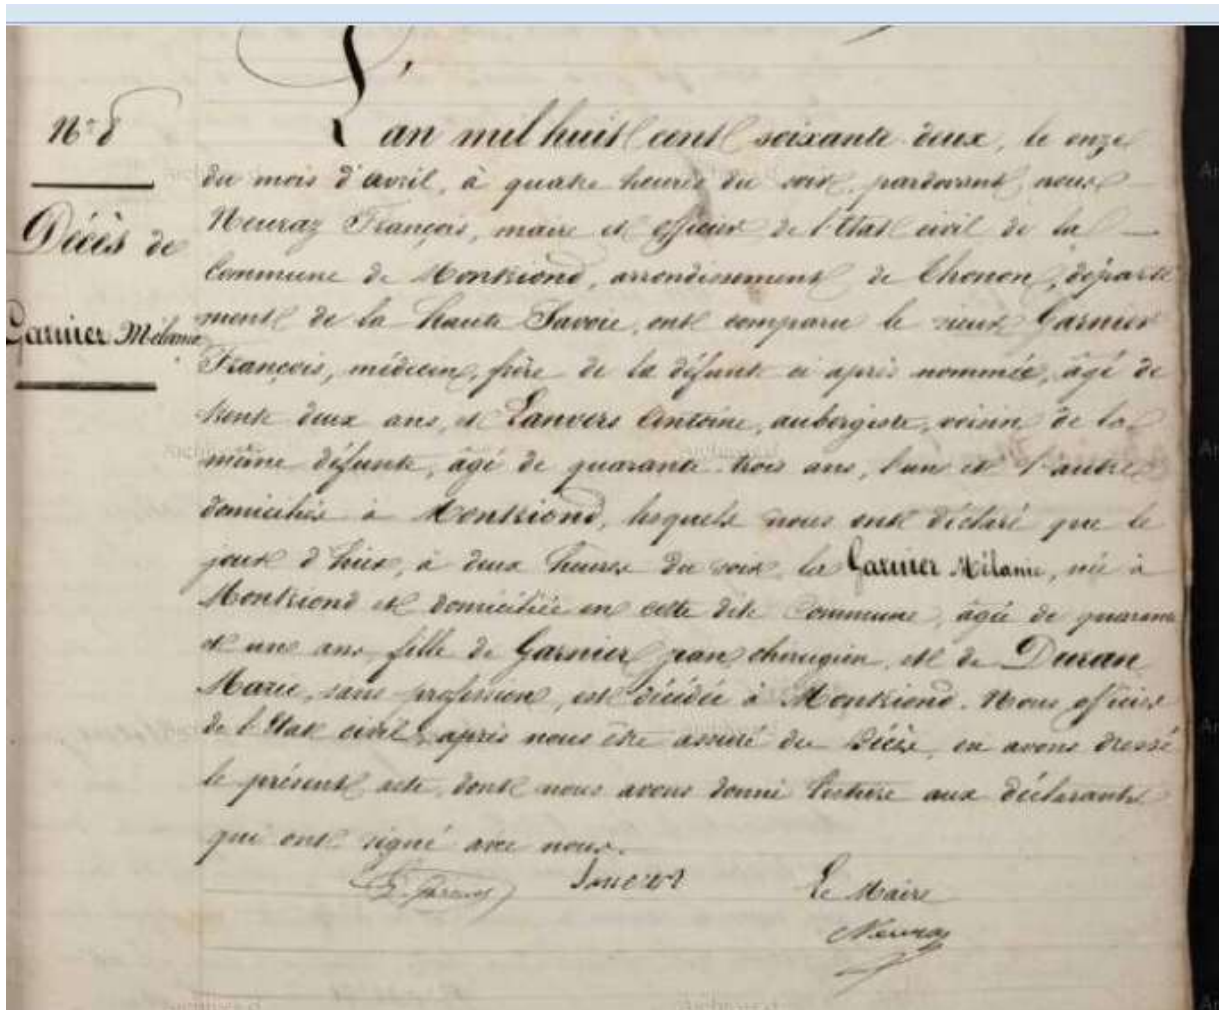 N° 8
Décès de
Garnier Mélanie
L'an mil huit cent soixante deux, le onze
du mois d'avril, à quatre heures du soir, pardevant nous
Neuraz François, maire et officier de l'Etat civil de la
Commune de Montriond, arrondissement de Thonon, départe
ment de la Haute Savoie, ont comparu le sieur Garnier
François, médecin, frère de la défunte ci après nommée, âgé de
trente deux ans, et Lanvers Antoine, aubergiste, voisin de la
même défunte, âgé de quarante trois ans, l'un et l'autre
domiciliés à Montriond, lesquels nous ont déclaré que le
jour d'hier, à deux heures du soir, la Garnier Mélanie, née à
Montriond et domiciliée en cette dite Commune, âgée de quarante
et une ans, fille de Garnier jean chirurgien, et de Duran
Marie, sans profession, est décédée à Montriond. Nous officier
de l'Etat civil, après nous être assuré du Décès, en avons dressé
le présent acte, dont nous avons donné lecture aux déclarants
qui ont signé avec nous.
Le Maire
Neuraz